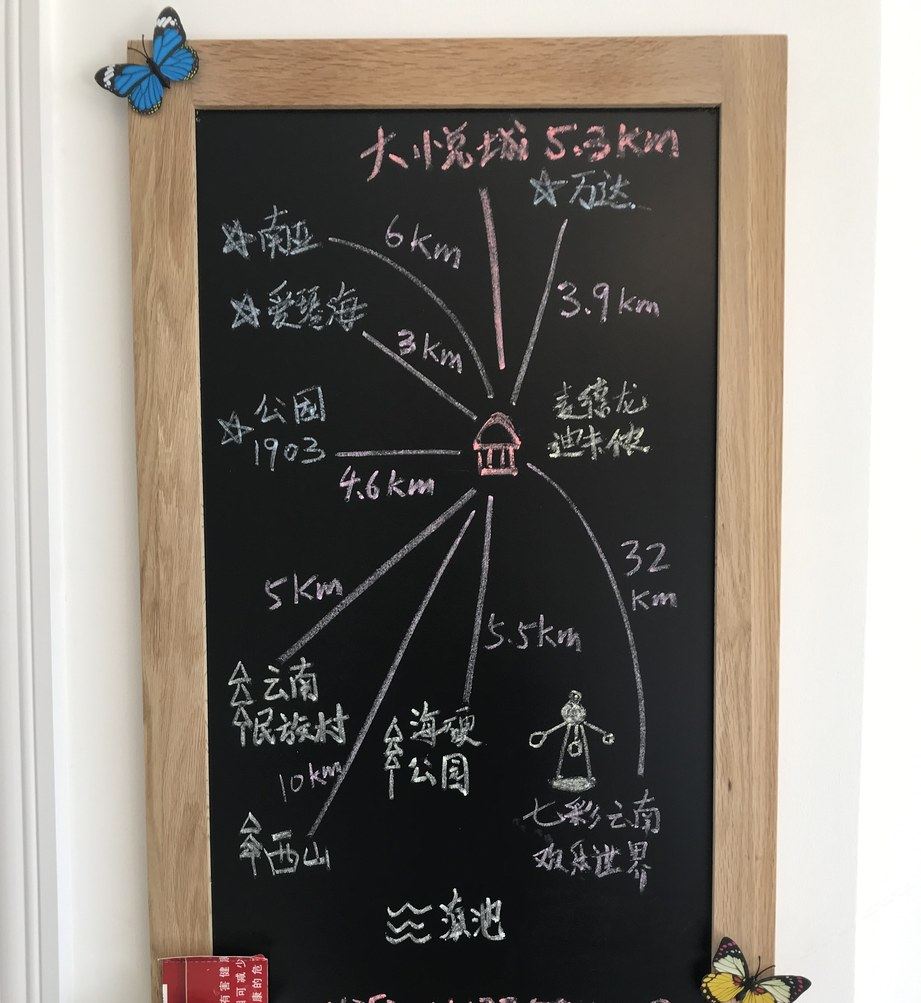 大悦城 5.3km
万达
南亚
6km
爱琴海
3km
3.9km
公园
1903
4.6km
麦德龙
迪卡侬
5km
32
km
5.5km
云南
民族村
海硬
公园
10km
西山
七彩云南
欢乐世界
滇池